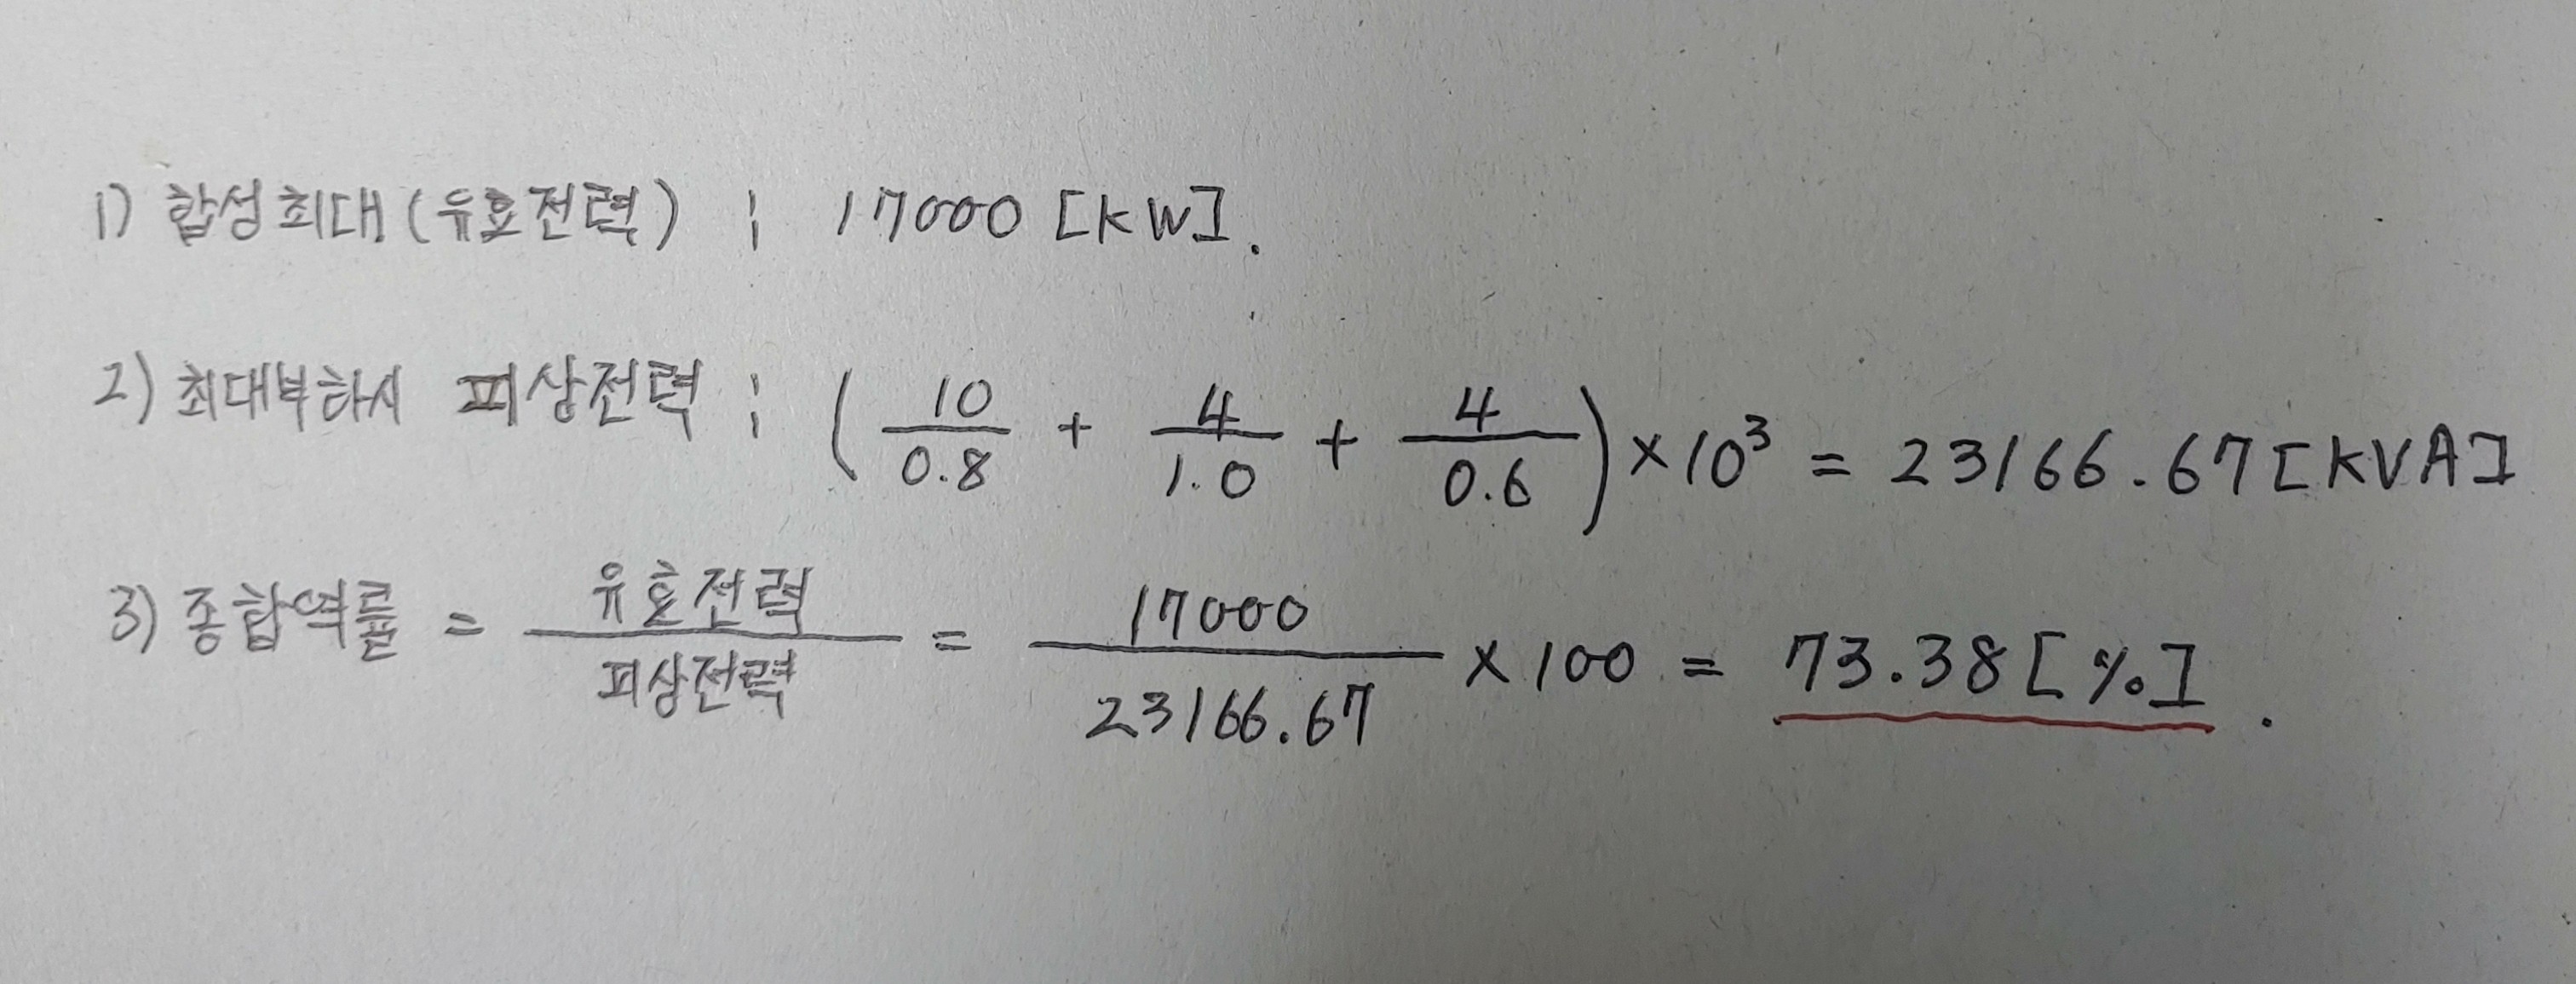 1) 합성최대(유효전력) : 17000 [KW].
2) 최대부하시 피상전력 : (10/0.8 + 4/1.0 + 4/0.6) × 10³ = 23166.67 [KVA]
3) 종합역률 = 유효전력/피상전력 = 17000/23166.67 × 100 = 73.38 [%].